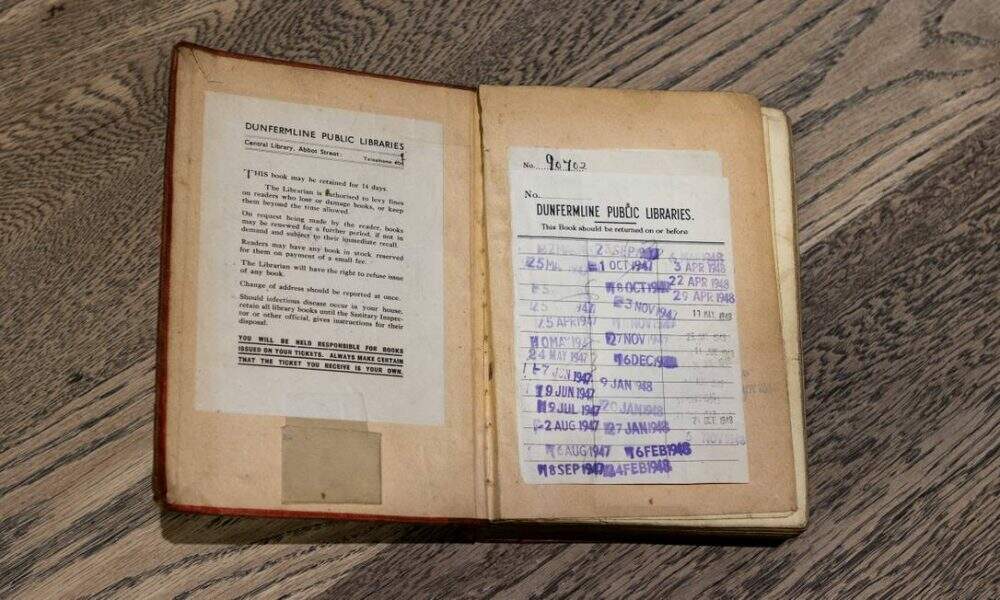 DUNFERMLINE PUBLIC LIBRARIES
Central Library, Abbot Street:
Telephone
THIS book may be retained for 14 days.
The Librarian is authorised to levy fines
on readers who lose or damage books, or keep
them beyond the time allowed.
On request being made by the reader, books
may be renewed for a further period, if not in
demand and subject to their immediate recall.
Readers may have any book in stock reserved
for them on payment of a small fee.
The Librarian will have the right to refuse issue
of any book.
Change of address should be reported at once.
Should infectious disease occur in your house,
retain all library books until the Sanitary Inspec-
tor or other official, gives instructions for their
disposal.
YOU WILL BE HELD RESPONSIBLE FOR BOOKS
ISSUED ON YOUR TICKETS. ALWAYS MAKE CERTAIN
THAT THE TICKET YOU RECEIVE IS YOUR OWN.
No. 90702
No.
DUNFERMLINE PUBLIC LIBRARIES.
This Book should be returned on or before
25 APR 1947
24 MAY 1947
-7 JUN 1947
19 JUN 1947
19 JUL 1947
-2 AUG 1947
16 AUG 1947
18 SEP 1947
-1 OCT 1947
18 OCT 1947
-3 NOV 1947
27 NOV 1947
16 DEC
9 JAN 1948
20 JAN 1948
27 JAN 1948
16 FEB 1948
24 FEB 1948
3 APR 1948
22 APR 1948
29 APR 1948